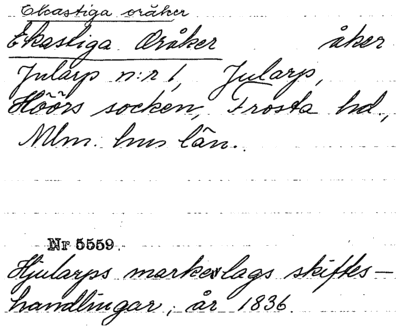 Ekastiga oråker
Ekastiga Oråker åker
Jularp n:r 1, Jularp,
Höörs socken, Frosta hd.,
Mlm. hus län.
Nr 5559.
Hjularps markeslags skiftes-
handlingar, år 1836.